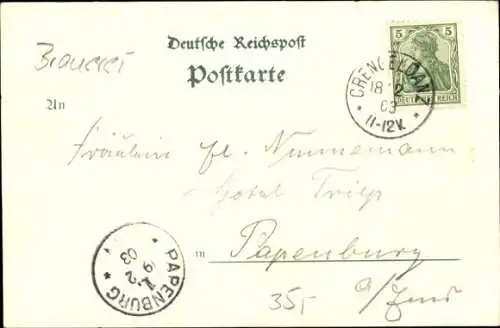 Deutsche Reichspost
Postkarte
5 5
DEUTSCHES REICH
CRENGELDANZ
18 2
03
11-12V.
An
Fräulein
Hotel
in Papenburg
a/Ems
35,-
PAPENBURG
19 2
03